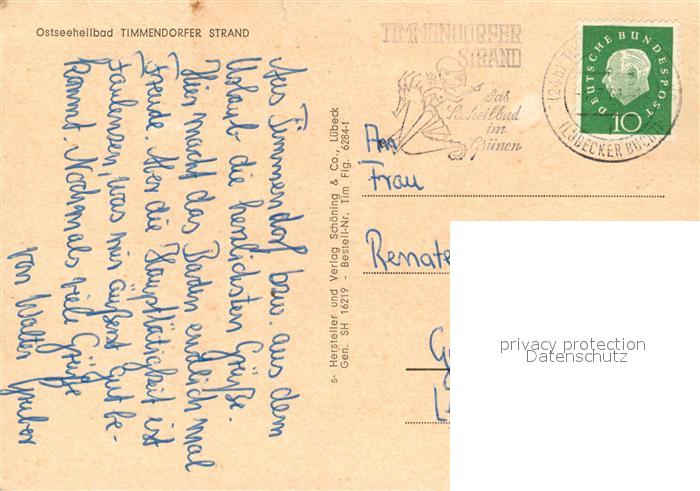 Ostseeheilbad TIMMENDORFER STRAND
Aus Timmendorf bzw. aus dem
Urlaub die herzlichsten Grüße.
Hier macht das Baden endlich mal
Freude. Aber die Haupttätigkeit ist
faulenzen, was mir äußerst gut be-
kommt. Nochmals viele Grüße
von Walter Gruber
s- Hersteller und Verlag Schöning & Co., Lübeck
Gen. SH 16219 - Bestell-Nr. Tim Flg. 6284-f
TIMMENDORFER
STRAND
Das
Seeheilbad
im
Grünen
DEUTSCHE BUNDESPOST
10
(LÜBECKER BUCHT)
An
Frau
Renate
privacy protection
Datenschutz